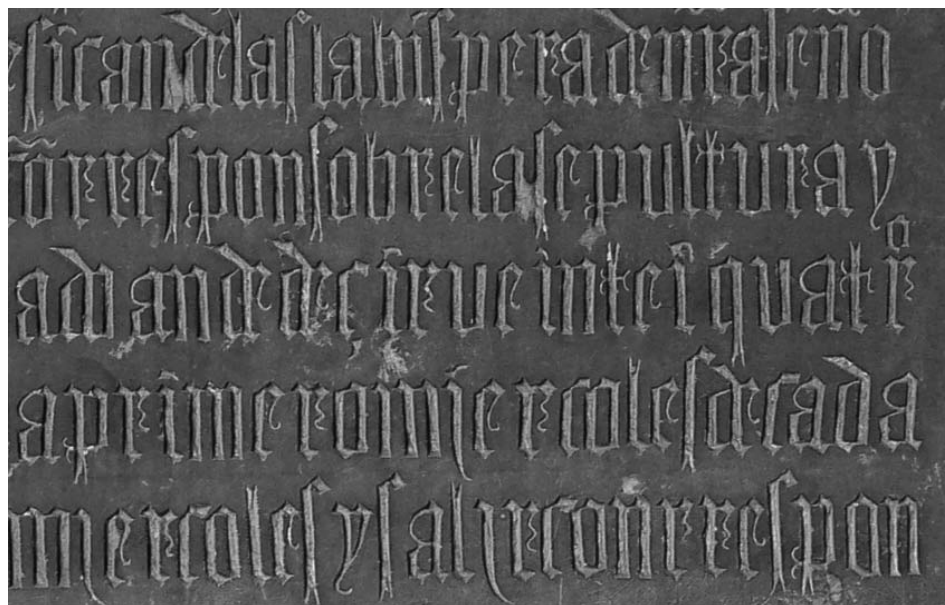 y si candelas la bispera de nra seno
cō rresponsobre la sepultura y
ad an de decir ueinte i quatrº
a primero mjercoles de cada
mjercoles y saljr con rrespon